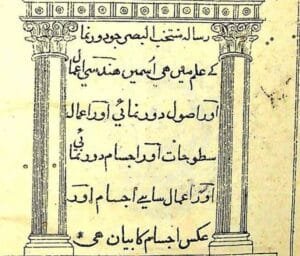 رساله منتخب البصر جو دور نما
کے علم میں هی اُسمیں هندسی اعمال
اور اصول دور نمائی اور اعمال
سطوحات اور اجسام دور نمائی
اور اعمال سایے اجسام اور
عکس اجسام کا بیان هی